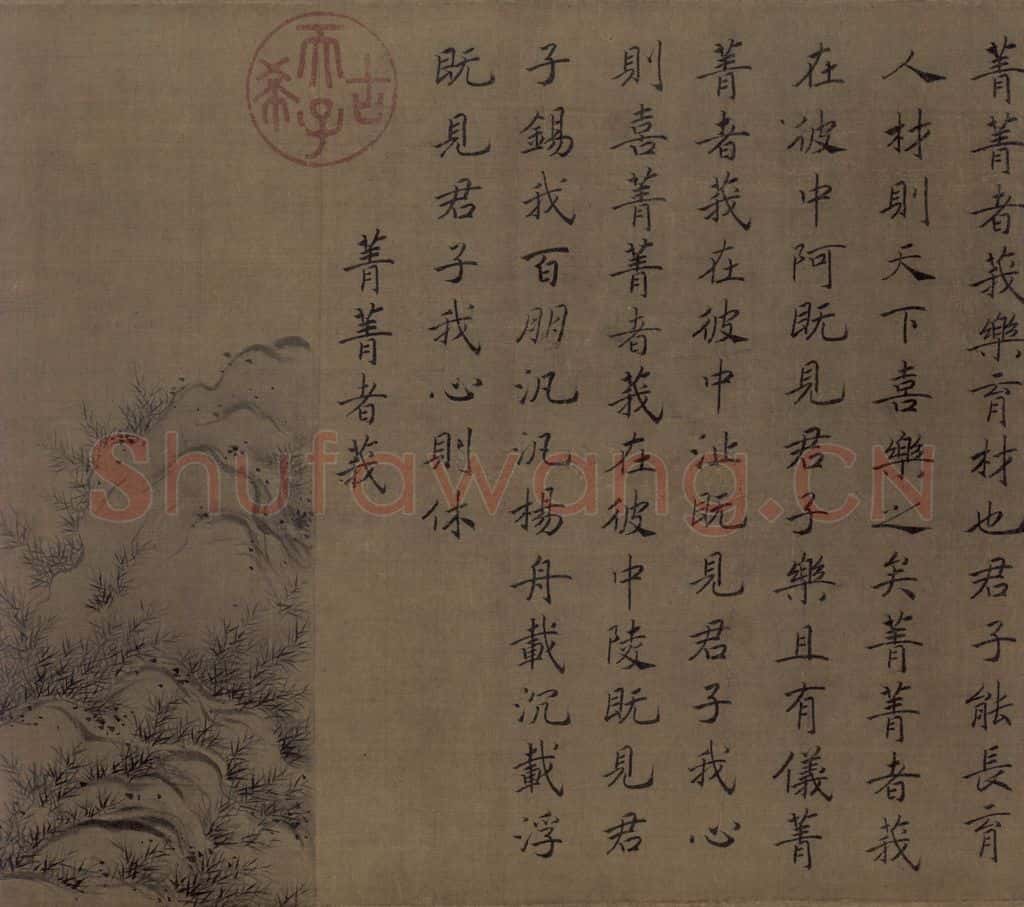 菁菁者莪樂育材也君子能長育
人材則天下喜樂之矣菁菁者莪
在彼中阿既見君子樂且有儀菁
菁者莪在彼中沚既見君子我心
則喜菁菁者莪在彼中陵既見君
子錫我百朋汎汎楊舟載沉載浮
既見君子我心則休
菁菁者莪
古希天子
Shufawang.CN